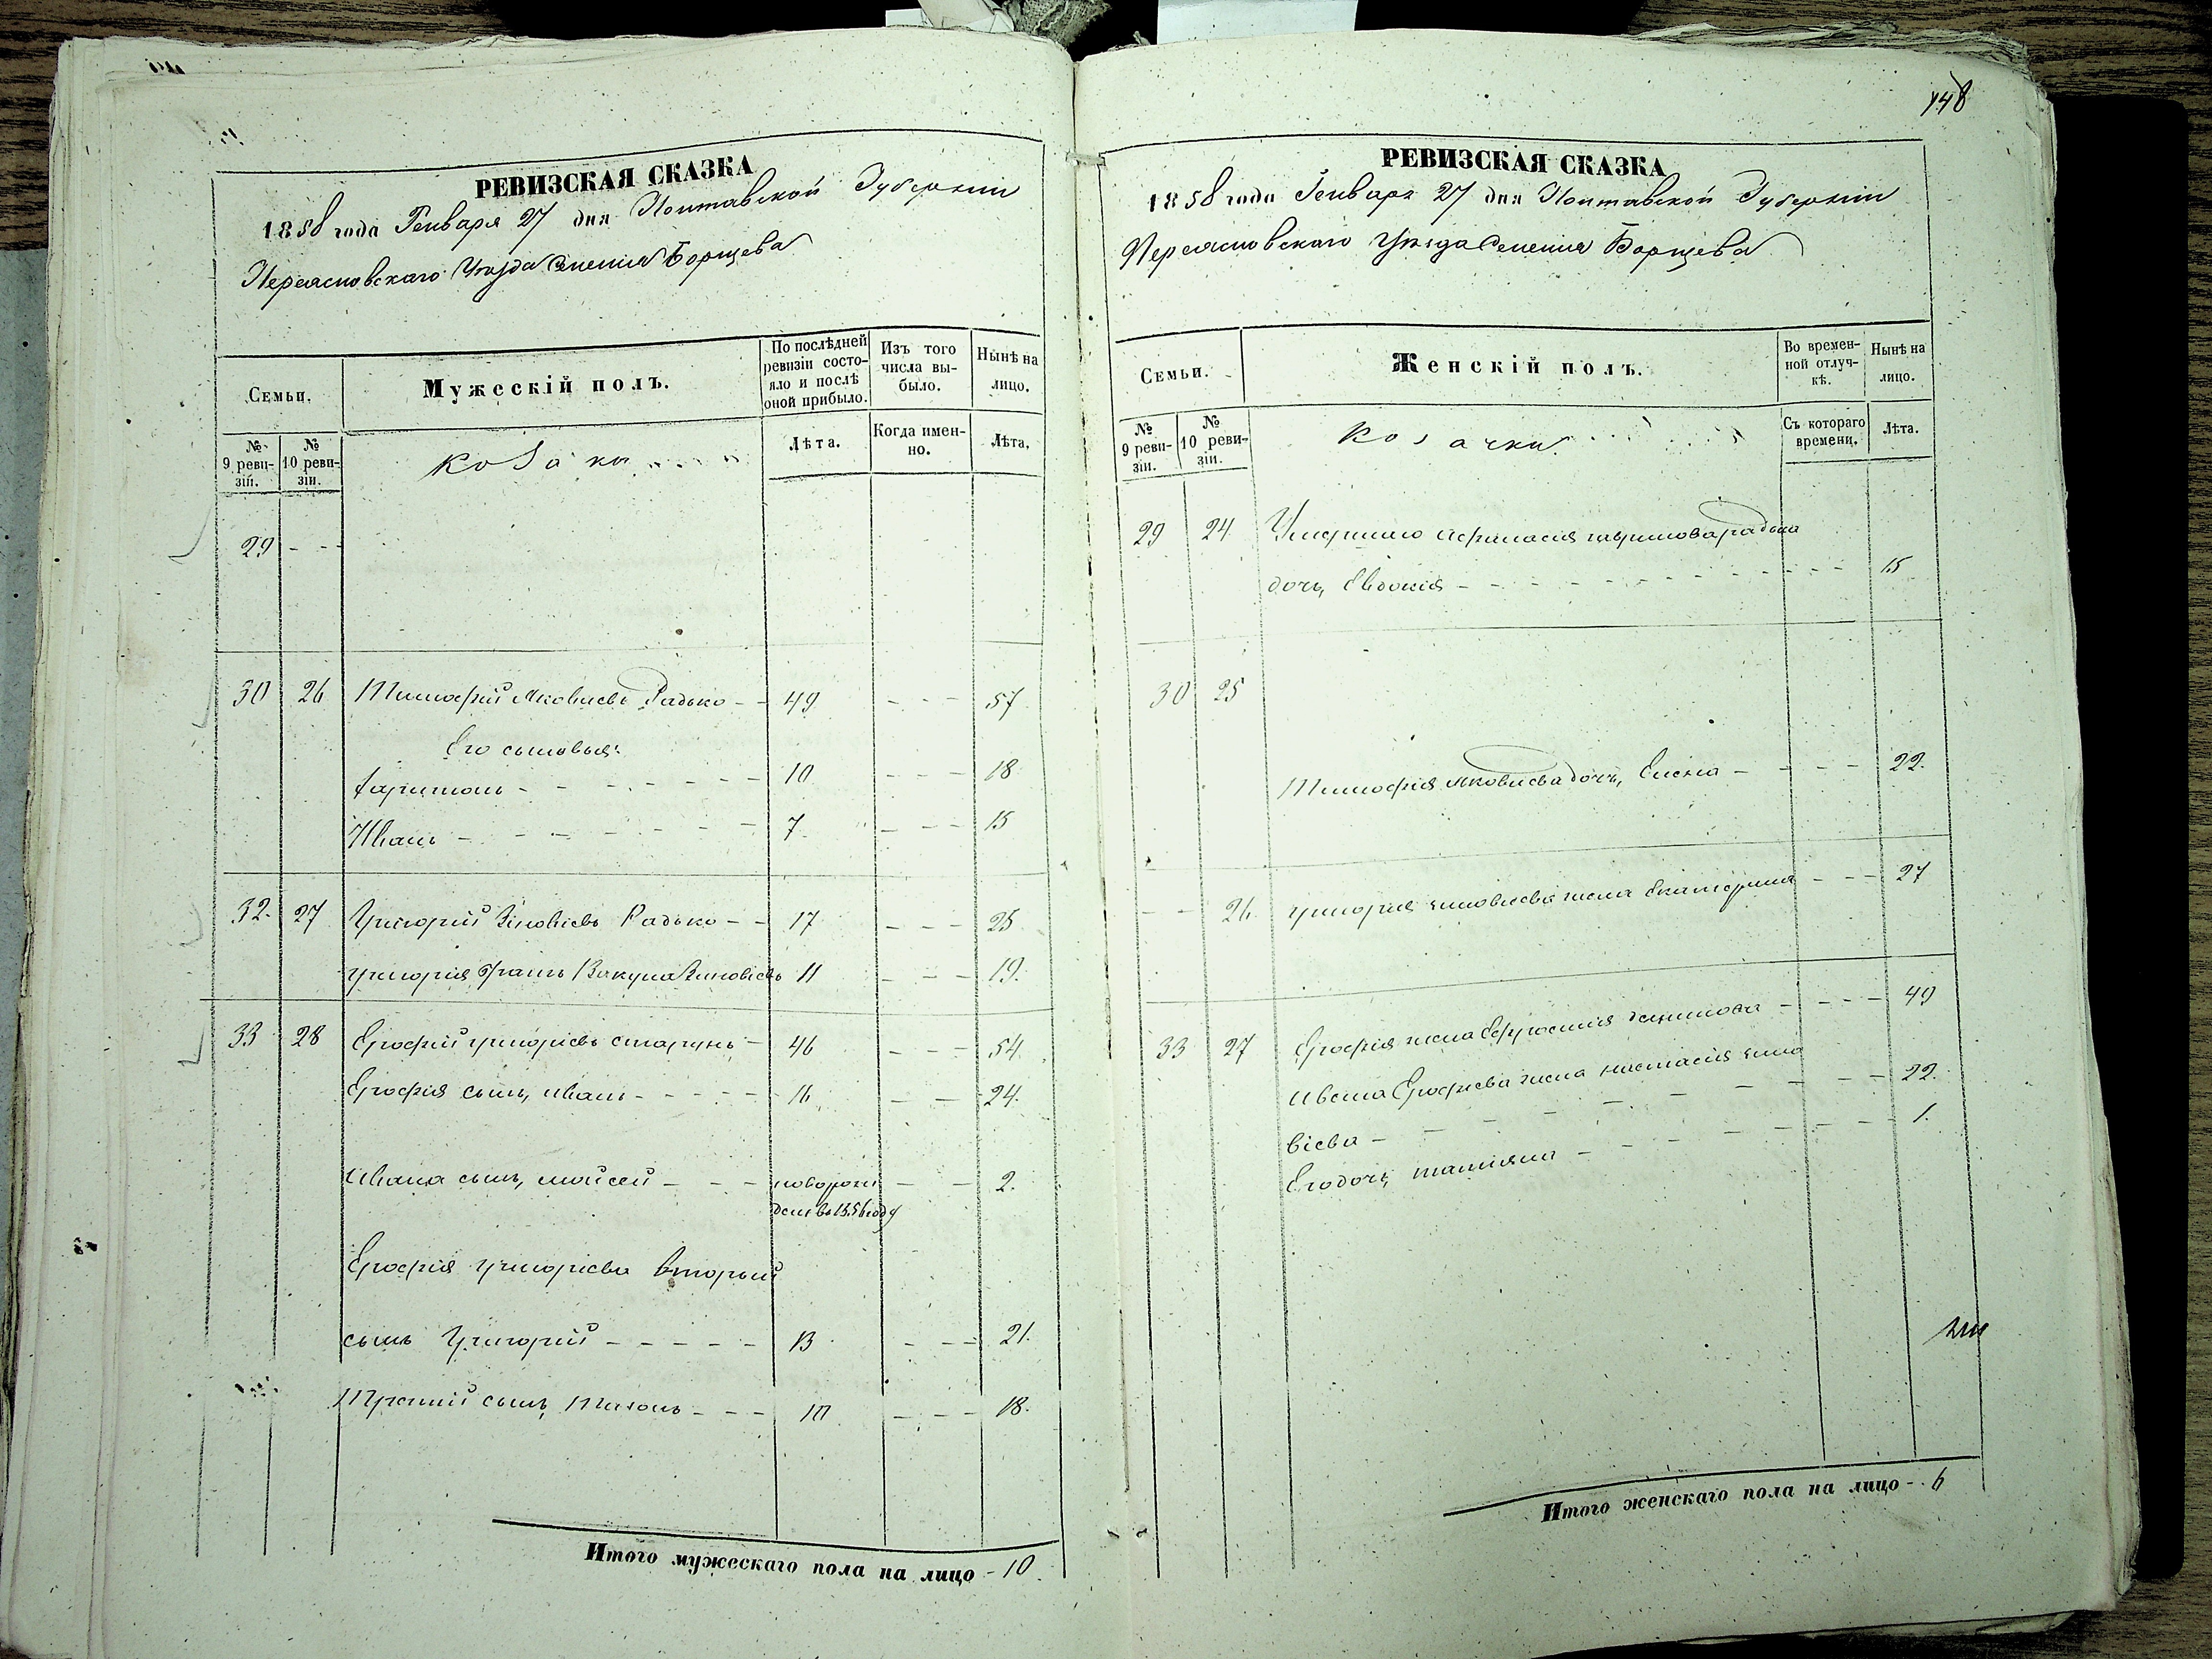 РЕВИЗСКАЯ СКАЗКА
1858 года Генваря 27 дня Полтавской Губерніи
Переясловскаго Уѣзда Селенія Борщева
Семьи.
Мужескій полъ.
По послѣдней ревизіи состояло и послѣ оной прибыло.
Изъ того числа выбыло.
Нынѣ на лицо.
№ 9 ревизіи.
№ 10 ревизіи.
Козаки
Лѣта.
Когда именно.
Лѣта.
29 - - -
30 26 Тимофій Яковлевъ Радько - - 49 - - - 57
Его сыновья:
Харитонъ - - - - - - - 10 - - - 18
Иванъ - - - - - - - 7 - - - 15
32. 27 Григорій Зіновіевъ Радько - - 17 - - - 25
Григорія братъ Вакула Зиновіевъ 11 - - - 19.
33 28 Ерофій Григоріевъ - 46 - - - 54.
Ерофія сынъ, Иванъ - - - - - 16 - - - 24.
Ивана сынъ, Мойсей - - - новорож - - 2.
денъ въ 1856 году
Ерофія Григоріева вторый
сынъ Григорій - - - - - 13 - - - 21.
Третій сынъ, Тихонъ - - - 10 - - - 18.
Итого мужескаго пола на лицо - 10.
148
РЕВИЗСКАЯ СКАЗКА
1858 года Генваря 27 дня Полтавской Губерніи
Переясловскаго Уѣзда Селенія Борщева
Семьи.
Женскій полъ.
Во временной отлучкѣ.
Нынѣ на лицо.
№ 9 ревизіи.
№ 10 ревизіи.
Козачки
Съ котораго времени.
Лѣта.
29 24 Умершаго Афанасія Радька
дочь, Евдокія - - - - - - - - - 15
30 25
Тимофія Яковлева дочь, Елена - - - - 22.
- - 26. Григорія Зиновіева жена Екатерина - - - 27
33 27 Ерофія жена Ефросинія - - - - 49
Ивана Ерофіева жена Настасія Зино
віева - - - - - - - - 22.
Его дочь, Татіяна - - - - - - 1.
Итого женскаго пола на лицо - - 6